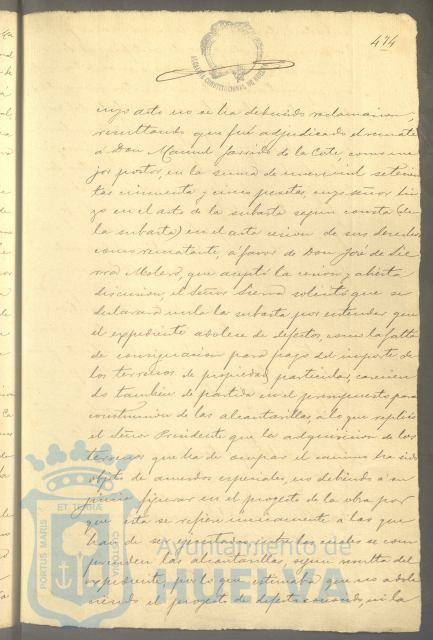 474
ALCALDIA CONSTITUCIONAL DE HUELVA
cuyo acto no se ha deducido reclamacion,
resultando que fué adjudicado el remate
á Don Manuel Garrido de la Cote, como me
jor postor, en la suma de nueve mil setecien
tas cincuenta y cinco pesetas, cuyo señor hi
zo en el acto de la subasta segun consta (de
la subasta) en el acta cesion de sus derechos
como rematante, á favor de Don José de Sie
rra Molero, que aceptó la cesion, y abierta
discusion, el Señor Sierra solicitó que se
declarara nula la subasta por entender que
el expediente adolece de defectos, como la falta
de consignacion para pago del importe de
los terrenos de propiedad particular, carecien
do tambien de partida en el presupuesto para
construccion de las alcantarillas, á lo que replicó
el Señor Presidente que la adquisicion de los
terrenos que ha de ocupar el camino ha sido
objeto de acuerdos especiales, no debiendo á su
juicio figurar en el proyecto de la obra por
que esta se refiere unicamente á las que
han de ser ejecutadas, entre las cuales se com
prenden las alcantarillas, segun resulta del
expediente, por lo que estimaba que no adole
ciendo el proyecto de defecto en la
PORTUS MARIS ET TERRÆ CUSTODIA
Ayuntamiento de
HUELVA